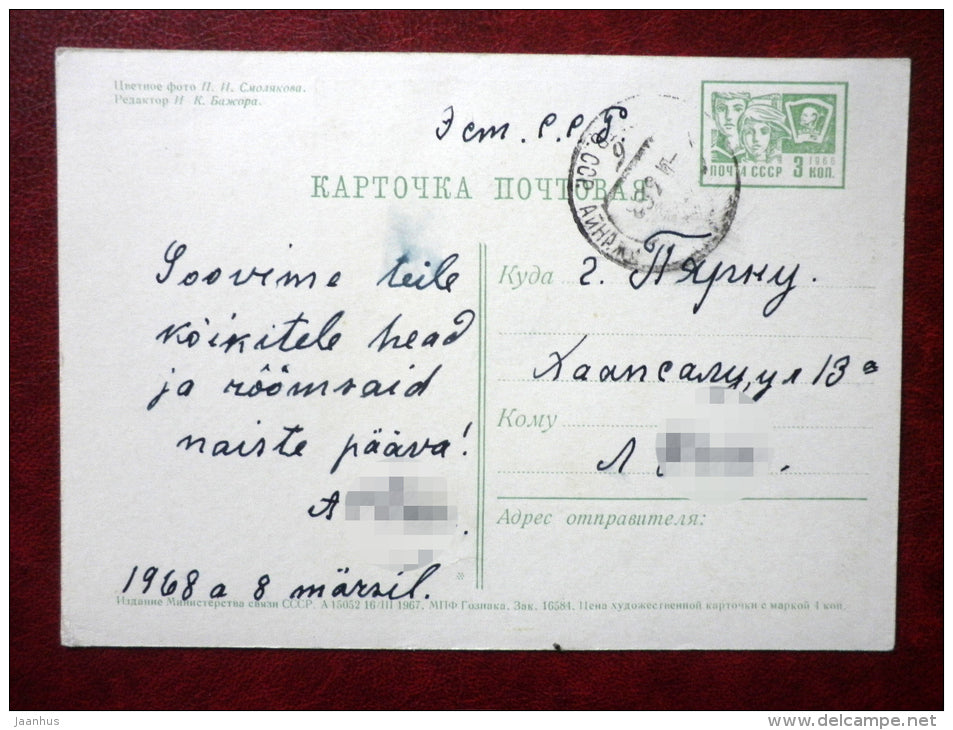 Цветное фото П. И. Смолякова.
Редактор И К. Бажора.
Эст. С.С.Р
1966
ПОЧТА СССР 3 КОП.
КАРТОЧКА ПОЧТОВАЯ
ССР АЙНАЖИ
Soovime teile
kõikitele head
ja rõõmsaid
naiste pääva!
A
1968 a 8 märsil.
Куда г. Пярну.
Хаапсалу, ул 13 а
Кому
Л
Адрес отправителя:
*
Издание Министерства связи СССР. А 15052 16/III 1967. МПФ Гознака. Зак. 16584. Цена художественной карточки с маркой 4 коп.
Jaanhus
www.delcampe.net